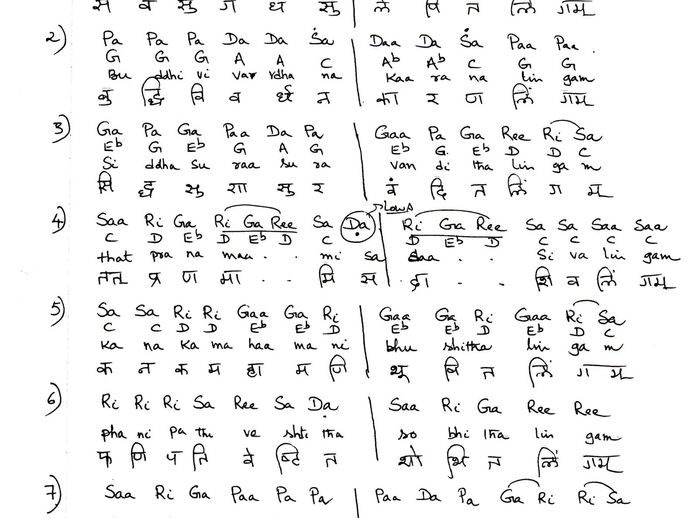 स र्व सु ग ंध सु | ले पि त लिं गम्
2) Pa Pa Pa Da Da Ṡa | Daa Da Ṡa Paa Paa .
G G G A A C | Ab Ab C G G
Bu ddhi vi var rdha na | Kaa ra na lin gam
बु द्धि वि व र्ध न | का र ण लिं गम्
3) Ga Pa Ga Paa Da Pa | Gaa Pa Ga Ree Ri Sa
Eb G Eb G A G | Eb G Eb D D C
Si ddha su raa su ra | van di tha lin ga m
सि द्ध सु रा सु र | वं दि त लिं ग म्
4) Saa Ri Ga Ri Ga Ree Sa Ḍa → Low A | Ri Ga Ree Sa Sa Saa Saa
C D Eb D Eb D C | D Eb D C C C C
that pra na maa . . mi sa | daa . . Si va lin gam
तत् प्र ण मा . . मि स | दा . . शि व लिं गम्
5) Sa Sa Ri Ri Gaa Ga Ri | Gaa Ga Ri Gaa Ri Sa
C C D D Eb Eb D | Eb Eb D Eb D C
Ka na Ka ma haa ma ni | bhu shi tha lin ga m
क न क म हा म णि | भू षि त लिं ग म्
6) Ri Ri Ri Sa Ree Sa Ḍa | Saa Ri Ga Ree Ree
pha ni pa thi ve shti tha | so bhi tha lin gam
फ णि प ति वे ष्टि त | शो भि त लिं गम्
7) Saa Ri Ga Paa Pa Pa | Paa Da Pa Ga Ri Ri Sa